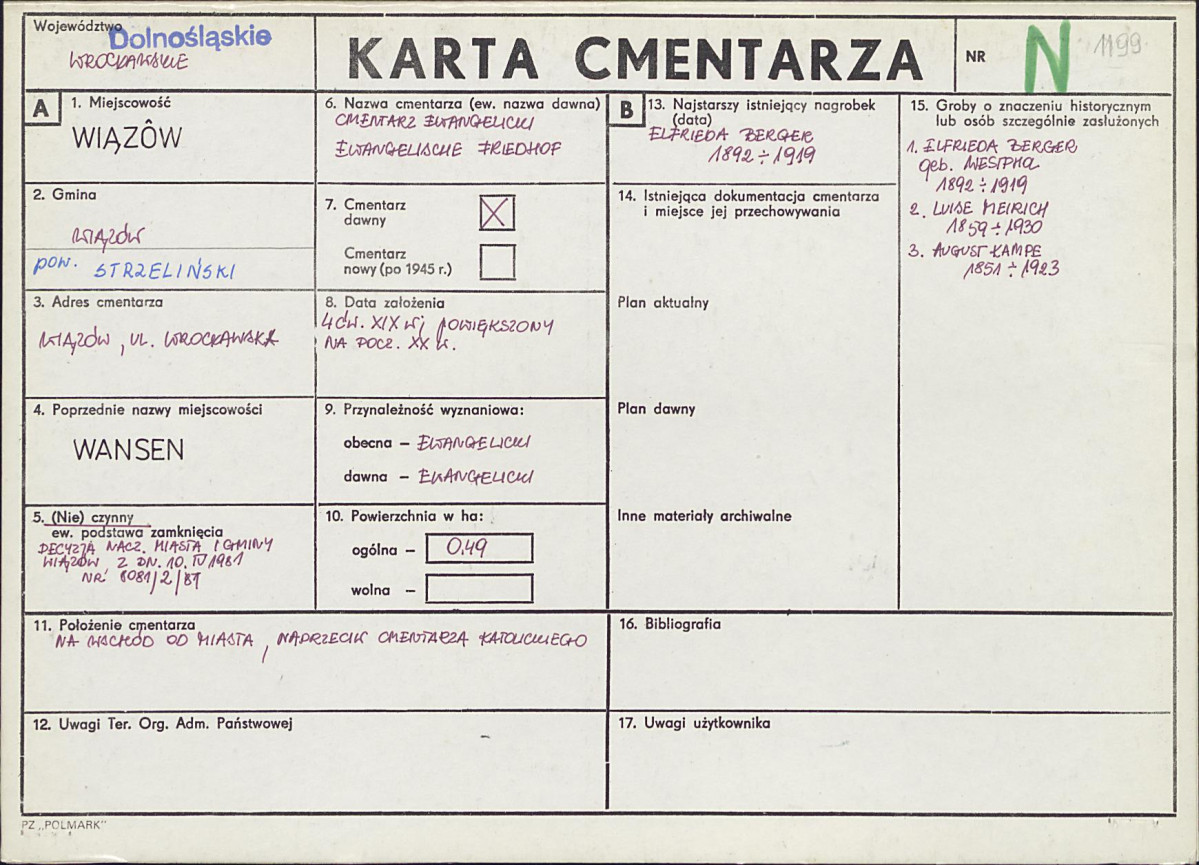 Województwo
Dolnośląskie
WROCŁAWSKIE
KARTA CMENTARZA
NR
N 1199
A
1. Miejscowość
WIĄZÓW
2. Gmina
WIĄZÓW
pow. STRZELIŃSKI
3. Adres cmentarza
WIĄZÓW, UL. WROCŁAWSKA
4. Poprzednie nazwy miejscowości
WANSEN
5. (Nie) czynny
ew. podstawa zamknięcia
DECYZJA NACZ. MIASTA I GMINY
WIĄZÓW Z DN. 10.IV 1981
NR 8081/2/81
6. Nazwa cmentarza (ew. nazwa dawna)
CMENTARZ EWANGELICKI
EWANGELISCHE FRIEDHOF
7. Cmentarz
dawny
X
Cmentarz
nowy (po 1945 r.)
8. Data założenia
4 ĆW. XIX W; POWIĘKSZONY
NA POCZ. XX W.
9. Przynależność wyznaniowa:
obecna – EWANGELICKI
dawna – EWANGELICKI
10. Powierzchnia w ha:
ogólna – 0,49
wolna –
11. Położenie cmentarza
NA WSCHÓD OD MIASTA, NAPRZECIW CMENTARZA KATOLICKIEGO
12. Uwagi Ter. Org. Adm. Państwowej
B
13. Najstarszy istniejący nagrobek
(data)
ELFRIEDA BERGER
1892 ÷ 1919
14. Istniejąca dokumentacja cmentarza
i miejsce jej przechowywania
Plan aktualny
Plan dawny
Inne materiały archiwalne
15. Groby o znaczeniu historycznym
lub osób szczególnie zasłużonych
1. ELFRIEDA BERGER
geb. WESTPHA
1892 ÷ 1919
2. LUISE MEIRICH
1859 ÷ 1930
3. AUGUST KAMPE
1851 ÷ 1923
16. Bibliografia
17. Uwagi użytkownika
PZ „POLMARK"